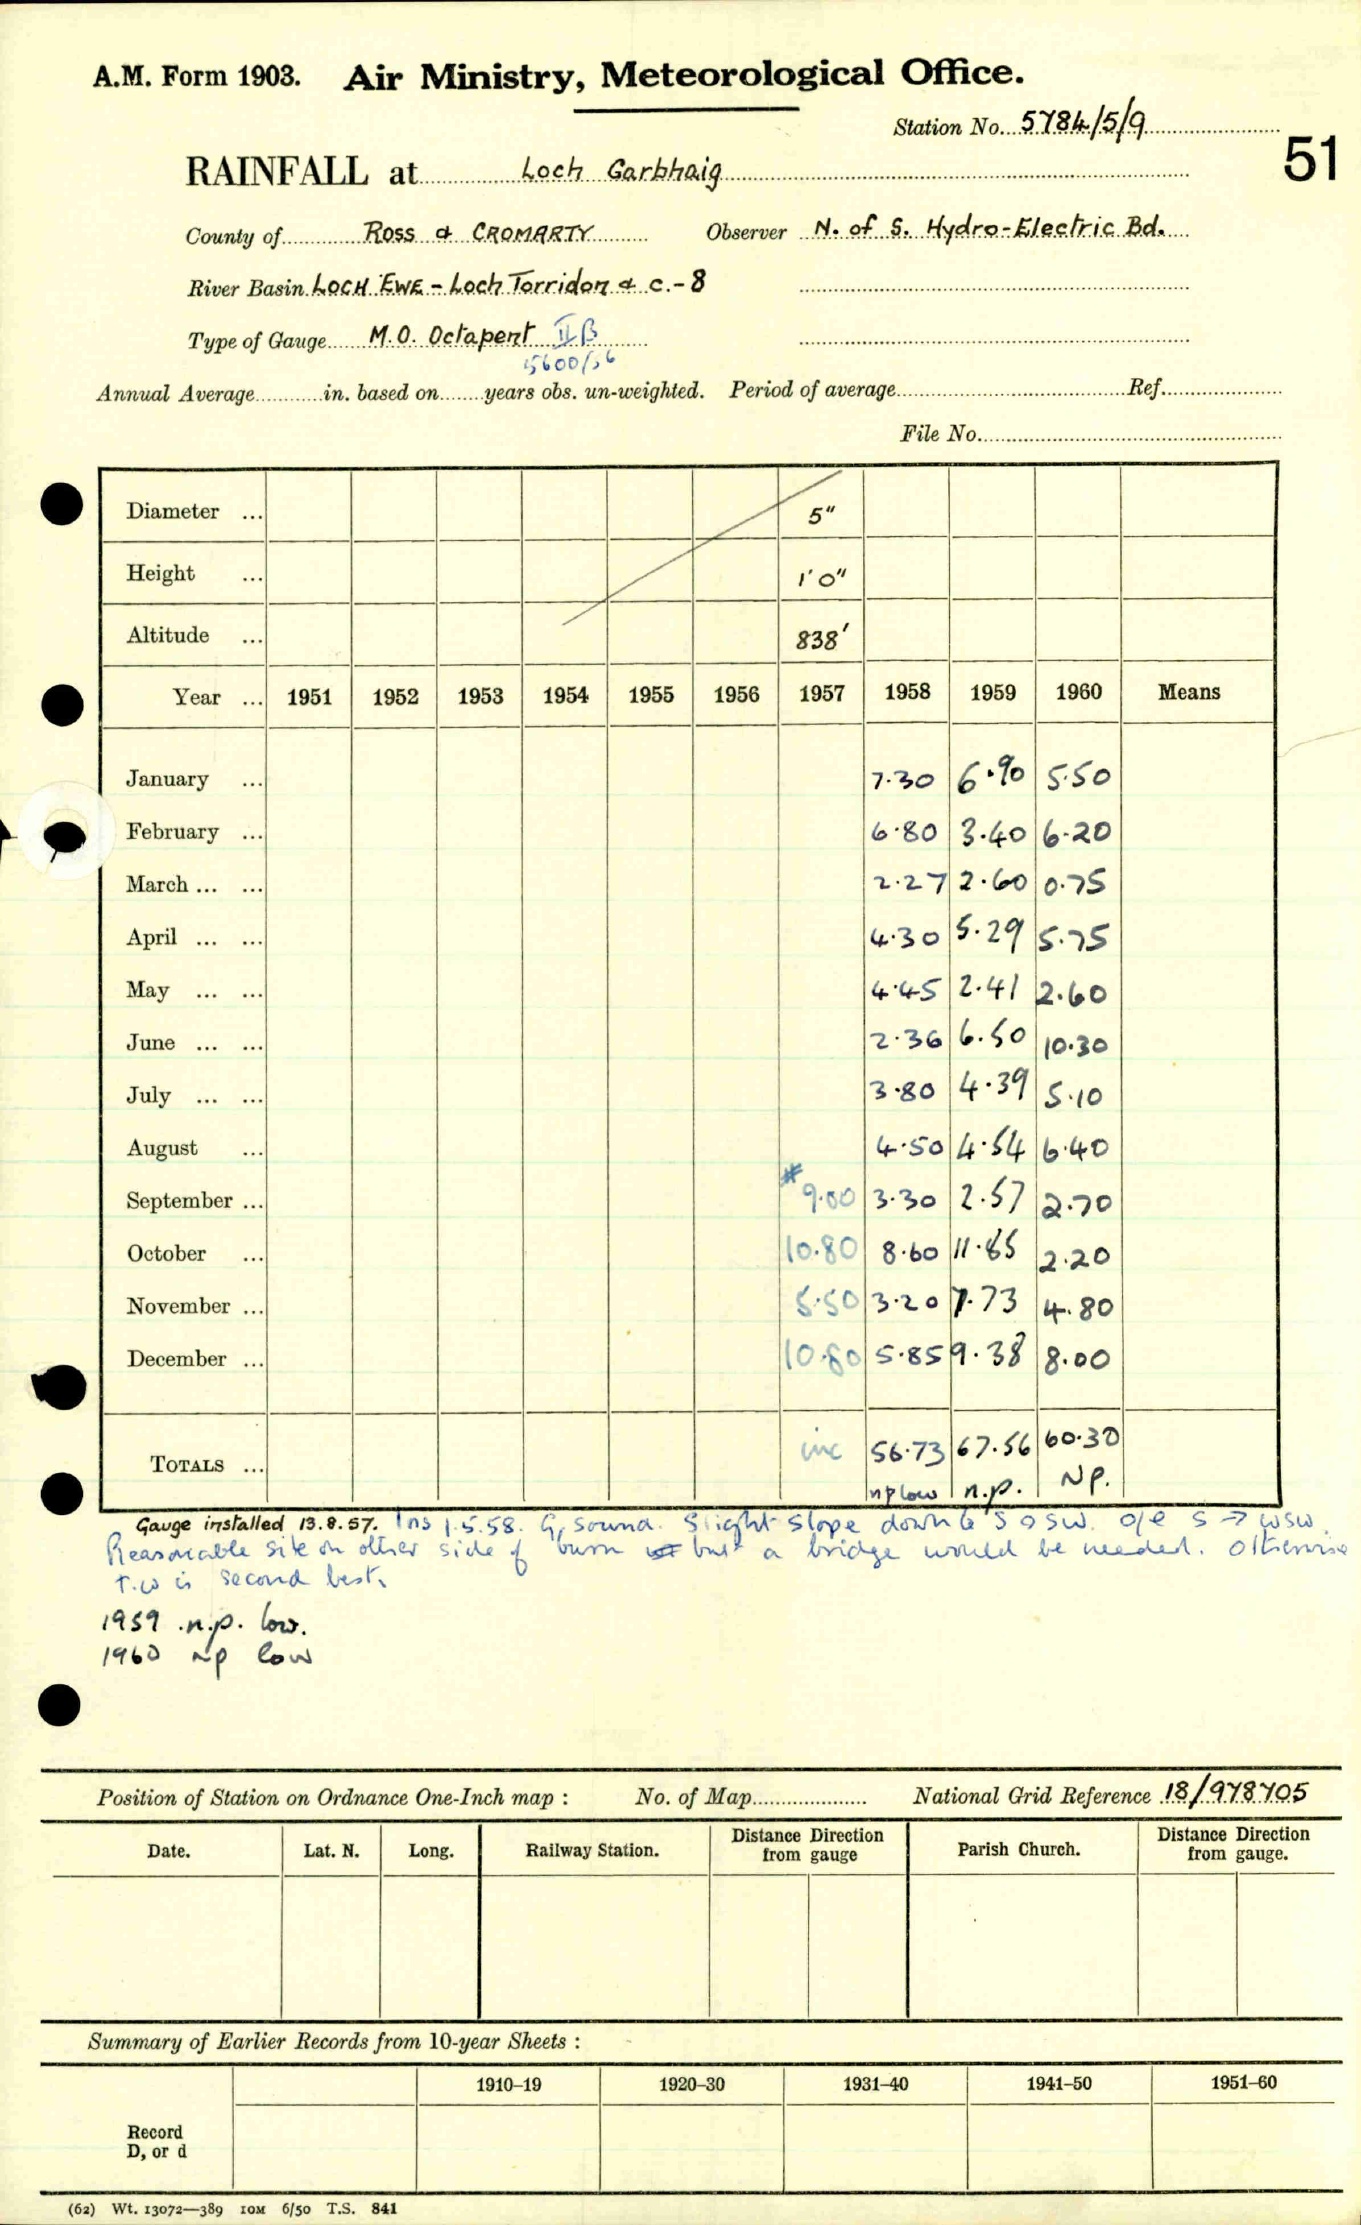 A.M. Form 1903. Air Ministry, Meteorological Office.
Station No. 5784/5/9
51
RAINFALL at Loch Garbhaig
County of Ross & CROMARTY Observer N. of S. Hydro-Electric Bd.
River Basin LOCH EWE - Loch Torridon & c.-8
Type of Gauge M.O. Octapent II B
5600/56
Annual Average in. based on years obs. un-weighted. Period of average Ref.
File No.
Diameter ... 5"
Height ... 1'0"
Altitude ... 838'
Year ... 1951 1952 1953 1954 1955 1956 1957 1958 1959 1960 Means
January ... 7.30 6.90 5.50
February ... 6.80 3.40 6.20
March ... ... 2.27 2.60 0.75
April ... ... 4.30 5.29 5.75
May ... ... 4.45 2.41 2.60
June ... ... 2.36 6.50 10.30
July ... ... 3.80 4.39 5.10
August ... 4.50 4.54 6.40
September ... # 9.00 3.30 2.57 2.70
October ... 10.80 8.60 11.85 2.20
November ... 5.50 3.20 7.73 4.80
December ... 10.80 5.85 9.38 8.00
TOTALS ... inc 56.73 67.56 60.30
np low n.p. NP.
Gauge installed 13.8.57. Ins 1.5.58. G, sound. Slight slope down to S & SW. o/e S → WSW.
Reasonable site on other side of burn but a bridge would be needed. Otherwise
t.w is second best.
1959 .n.p. low.
1960 NP low
Position of Station on Ordnance One-Inch map : No. of Map National Grid Reference 18/978705
Date. Lat. N. Long. Railway Station. Distance Direction from gauge Parish Church. Distance Direction from gauge.
Summary of Earlier Records from 10-year Sheets :
1910–19 1920–30 1931–40 1941–50 1951–60
Record
D, or d
(62) Wt. 13072—389 10M 6/50 T.S. 841